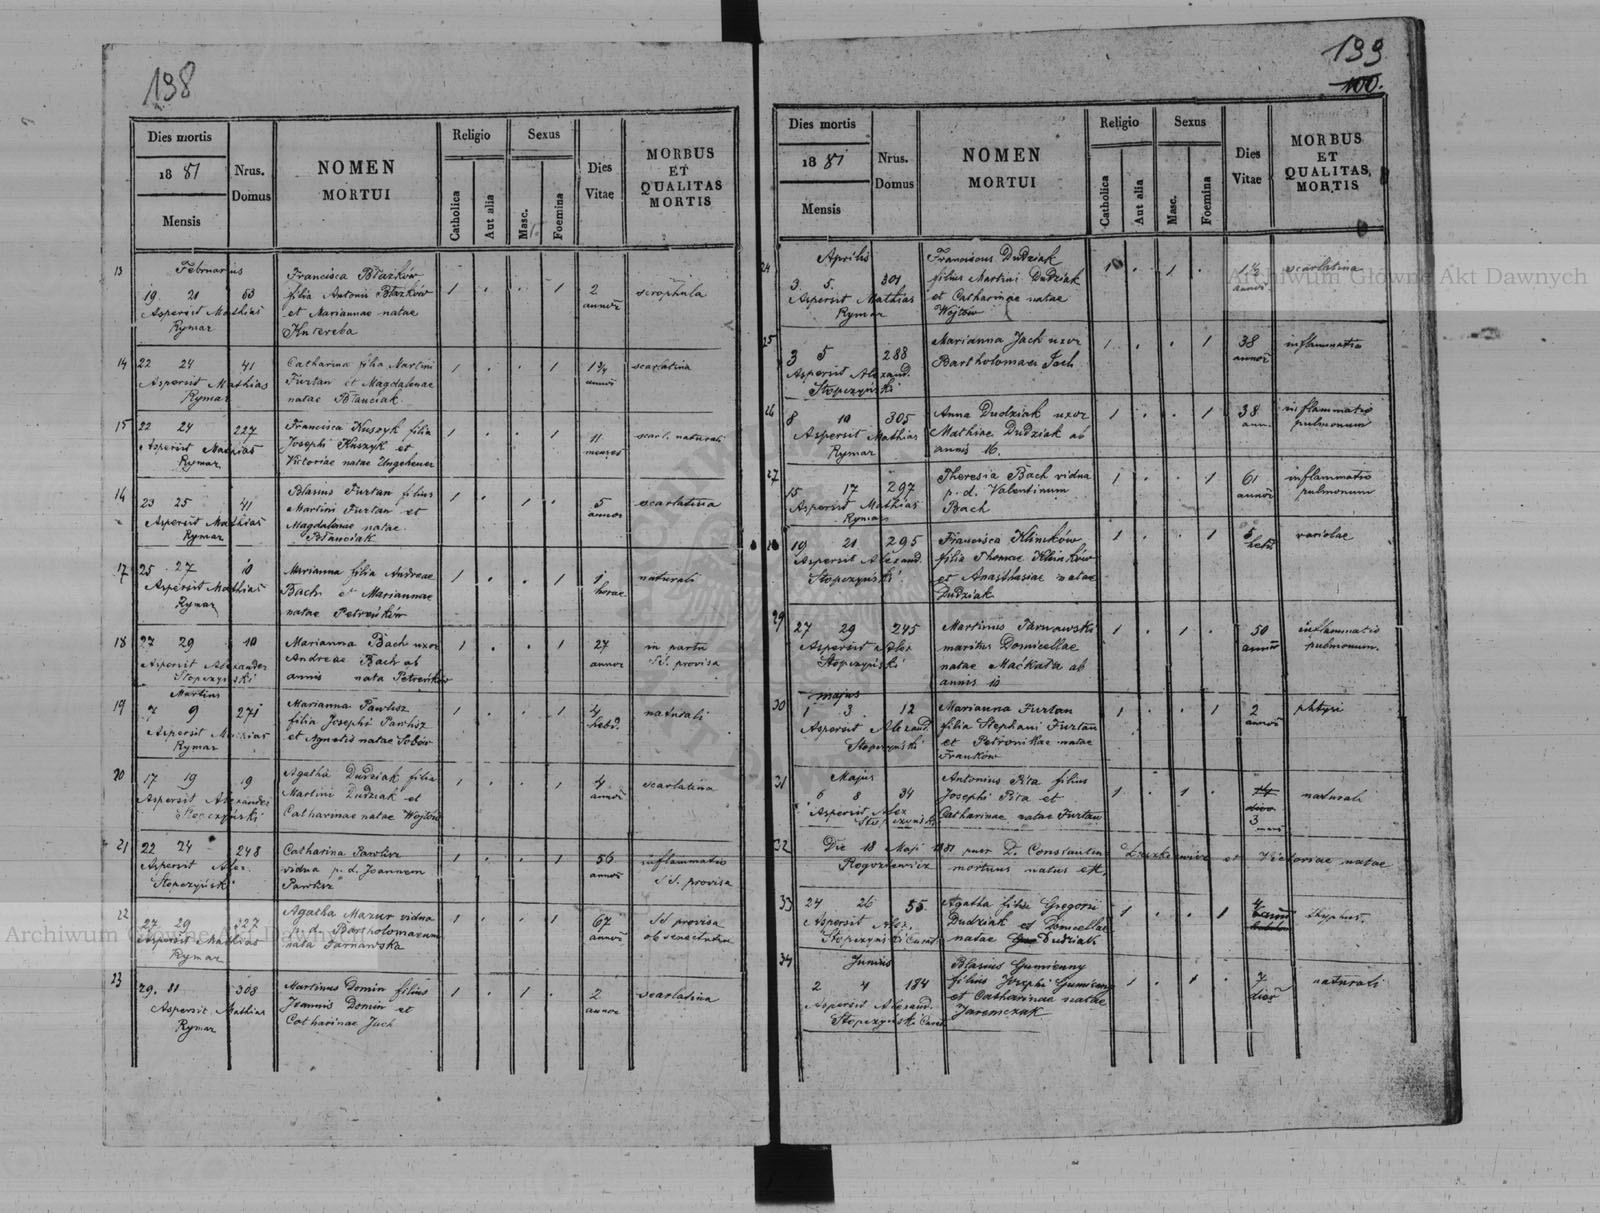 198
Dies mortis
1881
Mensis
Nrus.
Domus
NOMEN
MORTUI
Religio
Catholica
Aut alia
Sexus
Masc.
Foemina
Dies
Vitae
MORBUS
ET
QUALITAS
MORTIS
13 Februarius
19. 21 63
Aspersit Mathias
Rymar
Francisca Błażków
filia Antonii Błażków
et Mariannae natae
Knereba
1 . . 1
2
annor
scrophula
14 22 24 41
Aspersit Mathias
Rymar
Catharina filia Martini
Furtan et Magdalenae
natae Błanciak
1 . . 1
1 3/4
annor
scarlatina
15 22 24 227
Aspersit Mathias
Rymar
Francisca Kuszyk filia
Josephi Kuszyk et
Victoriae natae Ungeheuer
1 . . 1
11
menses
scarl. naturali
16 23 25 41
Aspersit Mathias
Rymar
Blasius Furtan filius
Martini Furtan et
Magdalenae natae
Błanciak
1 . 1 .
5
annor
scarlatina
17 25 27 10
Aspersit Mathias
Rymar
Marianna filia Andreae
Bach et Mariannae
natae Petreńków
1 . . 1
1
horae
naturali
18 27 29 10
Aspersit Alexander
Stopczyński
Marianna Bach uxor
Andreae Bach ab
annis nata Petreńków
1 . . 1
27
annor
in partu
SS. provisa
Martius
19 7 9 271
Aspersit Mathias
Rymar
Marianna Pawlisz
filia Josephi Pawlisz
et Agnetis natae Sobów
1 . . 1
4
hebd.
naturali
20 17 19 19
Aspersit Alexander
Stopczyński
Agatha Dudziak filia
Martini Dudziak et
Catharinae natae Wojtów
1 . . 1
4
annor
scarlatina
21 22 24 248
Aspersit Alex.
Stopczyński
Catharina Pawlisz
vidua p. d. Joannem
Pawlisz
1 . . 1
56
annor
inflammatio
SS. provisa
22 27 29 327
Aspersit Mathias
Rymar
Agatha Mazur vidua
p. d. Bartholomaeum
nata Tarnawska
1 . . 1
67
annor
SS provisa
ob senectutem
23 29. 31 308
Aspersit Mathias
Rymar
Martinus Domin filius
Joannis Domin et
Catharinae Jach
1 . 1 .
2
annor
scarlatina
199
100.
Dies mortis
1881
Mensis
Nrus.
Domus
NOMEN
MORTUI
Religio
Catholica
Aut alia
Sexus
Masc.
Foemina
Dies
Vitae
MORBUS
ET
QUALITAS
MORTIS
24 Aprilis
3. 5. 301
Aspersit Mathias
Rymar
Franciscus Dudziak
filius Martini Dudziak
et Catharinae natae
Wojtów
1 . 1 .
annor
scarlatina
25 3 5 288
Aspersit Alexand.
Stopczyński
Marianna Jach uxor
Bartholomaei Jach
1 . . 1
38
annor
inflammatio
26 8 10 305
Aspersit Mathias
Rymar
Anna Dudziak uxor
Mathiae Dudziak ab
annis 16.
1 . . 1
38
ann.
inflammatio
pulmonum
27 15 17 297
Aspersit Mathias
Rymar
Theresia Bach vidua
p. d. Valentinum
Bach
1 . . 1
61
annor
inflammatio
pulmonum
19 21 295
Aspersit Alexand.
Stopczyński
Francisca Klimków
filia Thomae Klimków
et Anasthasiae natae
Dudziak
1 . . 1
5
hebd
variolae
29 27 29 245
Aspersit Alex
Stopczyński
Martinus Tarnawski
maritus Domicellae
natae Maćkała ab
annis 10
1 . 1 .
50
annor
inflammatio
pulmonum.
Majus
30 1 3. 12
Aspersit Alexand.
Stopczyński
Marianna Furtan
filia Stephani Furtan
et Petronillae natae
Franków
1 . . 1
2
annor
phtysi
31 Majus
6 8 34
Aspersit Alex
Stopczyński
Antonius Piła filius
Josephi Piła et
Catharinae natae Furtan
1 . 1 .
14
dier
3
mens
naturali
32 Die 18 Maji 1881 puer D. Constantin Leszkiewicz et Victoriae natae
Rogoziewicz mortuus natus est.
33 24 26 55.
Aspersit Alex.
Stopczyński Curat.
Agatha filia Gregorii
Dudziak et Domicellae
natae Dudziak
1 . . 1
4
thyphus.
34 Junius
2 4 184
Aspersit Alexand.
Stopczyński Curat.
Blasius Gumienny
filius Josephi Gumienny
et Catharinae natae
Jaremczak
1 . 1 .
7
dier
naturali
Archiwum Główne Akt Dawnych
Archiwum Główne Akt Dawnych